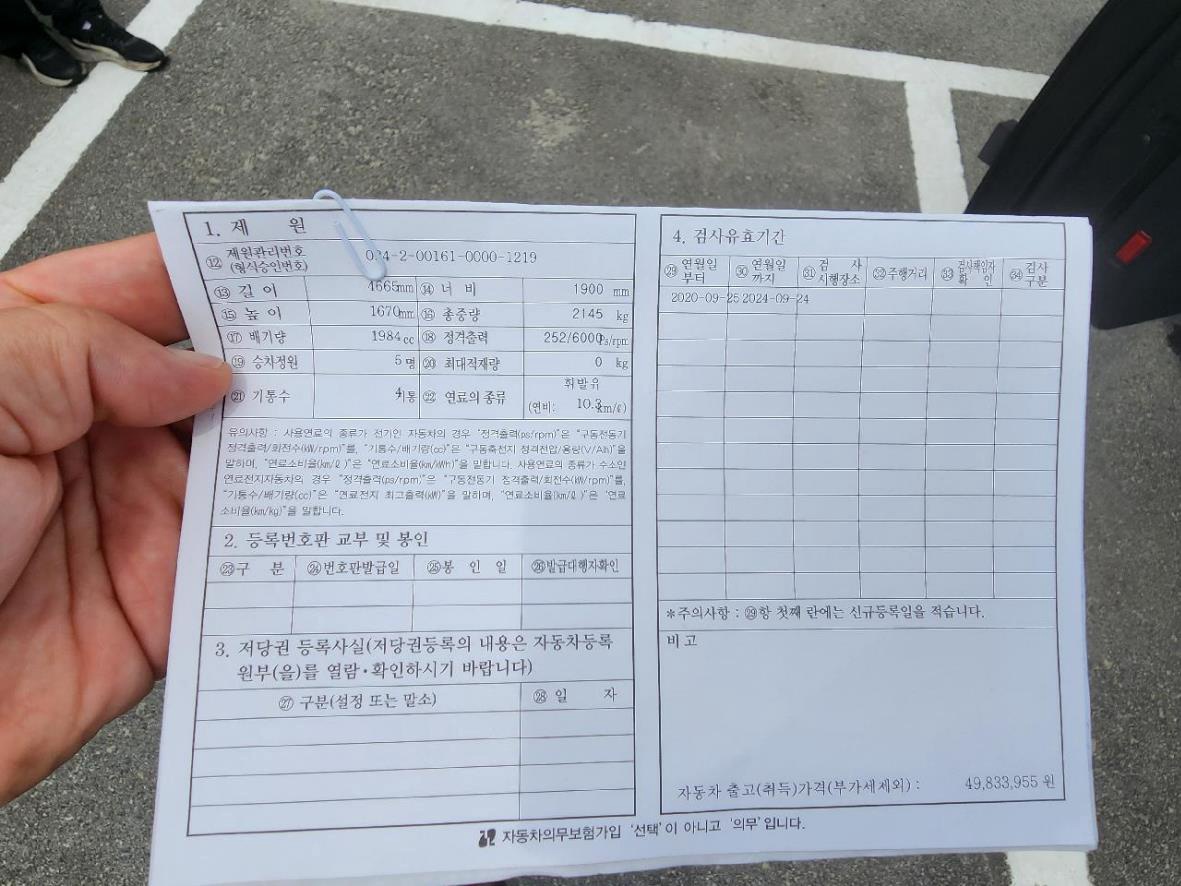 1. 제 원
⑫ 제원관리번호
(형식승인번호)
024-2-00161-0000-1219
⑬ 길 이 4665mm ⑭ 너 비 1900 mm
⑮ 높 이 1670mm ⑯ 총중량 2145 kg
⑰ 배기량 1984 cc ⑱ 정격출력 252/6000 Ps/rpm
⑲ 승차정원 5 명 ⑳ 최대적재량 0 kg
㉑ 기통수 4기통 ㉒ 연료의 종류 휘발유
(연비: 10.3 km/ℓ)
유의사항 : 사용연료의 종류가 전기인 자동차의 경우 "정격출력(ps/rpm)"은 "구동전동기
정격출력/회전수(kW/rpm)"를, "기통수/배기량(cc)"은 "구동축전지 정격전압/용량(V/Ah)"을
말하며, "연료소비율(km/ℓ)"은 "연료소비율(km/kWh)"을 말합니다. 사용연료의 종류가 수소인
연료전지자동차의 경우 "정격출력(ps/rpm)"은 "구동전동기 정격출력/회전수(kW/rpm)"를,
"기통수/배기량(cc)"은 "연료전지 최고출력(kW)"을 말하며, "연료소비율(km/ℓ)"은 "연료
소비율(km/kg)"을 말합니다.
2. 등록번호판 교부 및 봉인
㉓ 구 분 ㉔ 번호판발급일 ㉕ 봉 인 일 ㉖ 발급대행자확인
3. 저당권 등록사실(저당권등록의 내용은 자동차등록
원부(을)를 열람·확인하시기 바랍니다)
㉗ 구분(설정 또는 말소) ㉘ 일 자
4. 검사유효기간
㉙ 연월일
부터
㉚ 연월일
까지
㉛ 검 사
시행장소
㉜ 주행거리
㉝ 검사책임자
확 인
㉞ 검사
구분
2020-09-25 2024-09-24
*주의사항 : ㉙항 첫째 란에는 신규등록일을 적습니다.
비 고
자동차 출고(취득)가격(부가세제외) : 49,833,955 원
자동차의무보험가입 '선택'이 아니고 '의무'입니다.